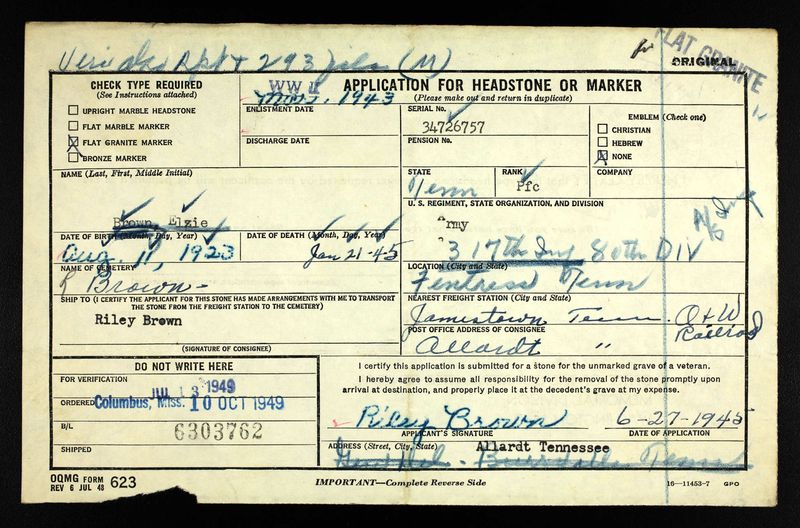 293 (M)
FLAT GRANITE
ORIGINAL
CHECK TYPE REQUIRED
(See Instructions attached)
UPRIGHT MARBLE HEADSTONE
FLAT MARBLE MARKER
FLAT GRANITE MARKER
BRONZE MARKER
WW II
APPLICATION FOR HEADSTONE OR MARKER
(Please make out and return in duplicate)
ENLISTMENT DATE
1943
DISCHARGE DATE
SERIAL No.
34726757
PENSION No.
EMBLEM (Check one)
CHRISTIAN
HEBREW
NONE
NAME (Last, First, Middle Initial)
Brown, Elzie
STATE
Tenn
RANK
Pfc
COMPANY
U. S. REGIMENT, STATE ORGANIZATION, AND DIVISION
Army
317th Inf 80th DIV
DATE OF BIRTH (Month, Day, Year)
Aug. 11, 1923
DATE OF DEATH (Month, Day, Year)
Jan 21-45
NAME OF CEMETERY
Brown-
LOCATION (City and State)
Fentress Tenn
SHIP TO (I CERTIFY THE APPLICANT FOR THIS STONE HAS MADE ARRANGEMENTS WITH ME TO TRANSPORT
THE STONE FROM THE FREIGHT STATION TO THE CEMETERY)
Riley Brown
(SIGNATURE OF CONSIGNEE)
NEAREST FREIGHT STATION (City and State)
Jamestown, Tenn. O & W
Railroad
POST OFFICE ADDRESS OF CONSIGNEE
Allardt "
DO NOT WRITE HERE
FOR VERIFICATION
JUL 13 1949
ORDERED
Columbus, Miss. 10 OCT 1949
B/L
6303762
SHIPPED
I certify this application is submitted for a stone for the unmarked grave of a veteran.
I hereby agree to assume all responsibility for the removal of the stone promptly upon
arrival at destination, and properly place it at the decedent's grave at my expense.
Riley Brown 6-27-1945
APPLICANT'S SIGNATURE
DATE OF APPLICATION
ADDRESS (Street, City, State)
Allardt Tennessee
Tenn
OQMG FORM 623
REV 6 JUL 48
IMPORTANT—Complete Reverse Side
16—11453-7 GPO